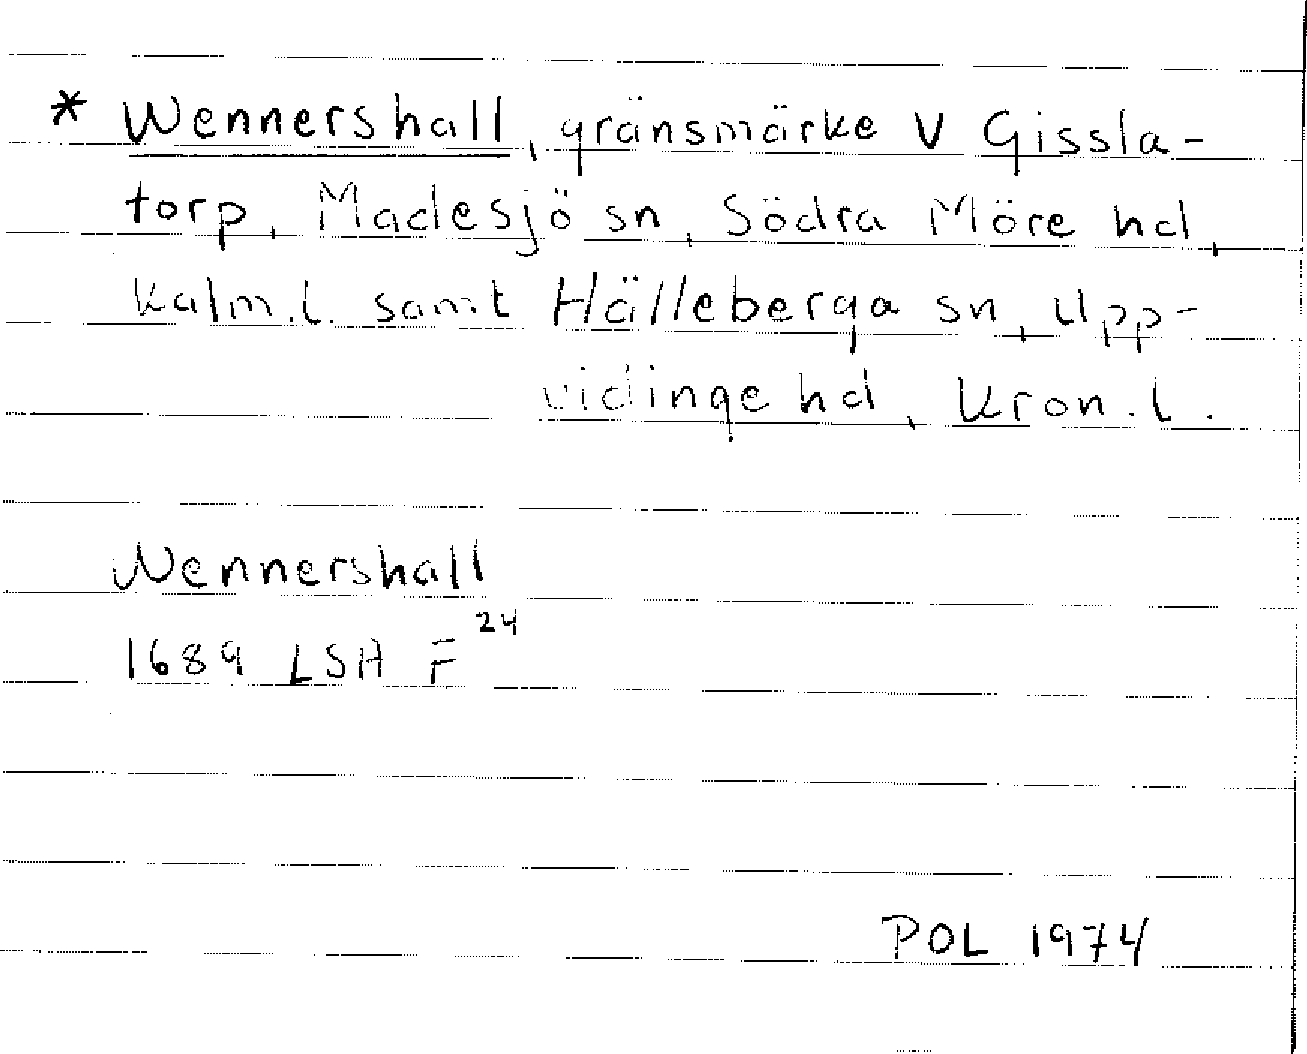 * Wennershall, gränsmärke V Gissla-
torp, Madesjö sn, Södra Möre hd,
Kalm.l. samt Hälleberga sn, Upp-
vidinge hd, Kron.l.
Wennershall
1689 LSA F24
POL 1974